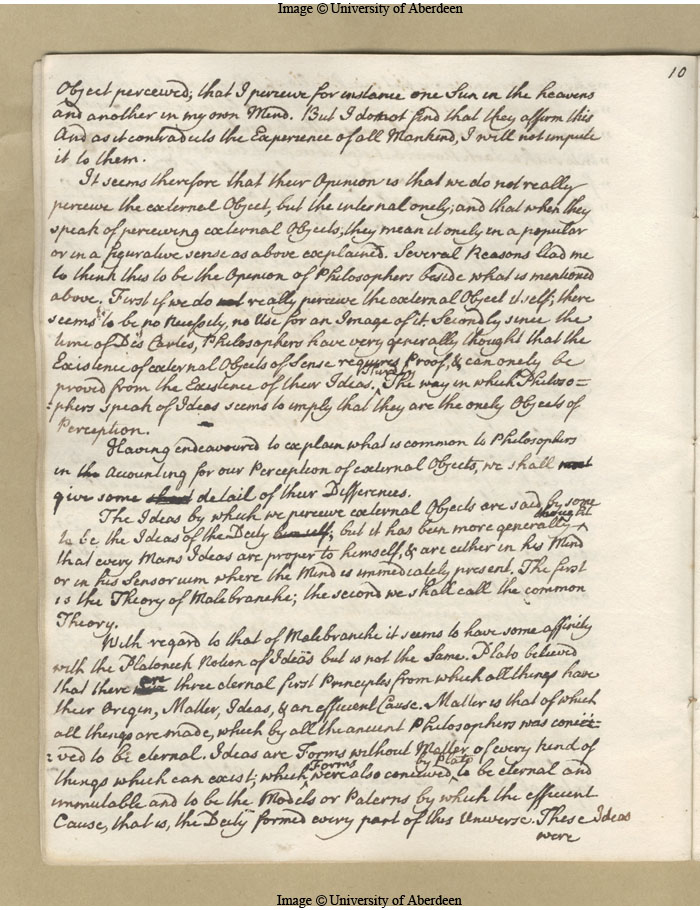 Image © University of Aberdeen
10
Object perceived; that I perceive for instance one Sun in the heavens
and another in my own Mind. But I do not find that they affirm this
And as it contradicts the Experience of all Mankind, I will not impute
it to them.
It seems therefore that their Opinion is that we do not really
perceive the external Object, but the internal onely; and that when they
speak of perceiving external Objects, they mean it onely in a popular
or in a figurative sense as above explained. Several Reasons lead me
to think this to be the Opinion of Philosophers beside what is mentioned
above. First if we do not really perceive the external Object itself, there
seems to be no Necessity, no Use for an Image of it. Secondly since the
time of Des Cartes, Philosophers have very generally thought that the
Existence of external Objects of Sense requires Proof, & can onely be
proved from the Existence of their Ideas. The way in which Philoso=
=phers speak of Ideas seems to imply that they are the onely Objects of
Perception.
Having endeavoured to explain what is common to Philosophers
in the Acounting for our Perception of external Objects, we shall
give some detail of their Differences.
The Ideas by which we perceive external Objects are said by some
to be the Ideas of the Deity himself, but it has been more generally thought
that every Mans Ideas are proper to himself, & are either in his Mind
or in his Sensorium where the Mind is immediately present. The first
is the Theory of Malebranche; the second we shall call the common
Theory.
With regard to that of Malebranche it seems to have some affinity
with the Platonick Notion of Ideas but is not the Same. Plato believed
that there are three eternal first Principles from which all things have
their Origin, Matter, Ideas, & an efficient Cause. Matter is that of which
all things are made, which by all the ancient Philosophers was concei=
=ved to be eternal. Ideas are Forms without Matter of every kind of
things which can exist; which Forms were also conceived by Plato to be eternal and
immutable and to be the Models or Paterns by which the efficient
Cause, that is, the Deity formed every part of this Universe. These Ideas
were
Image © University of Aberdeen